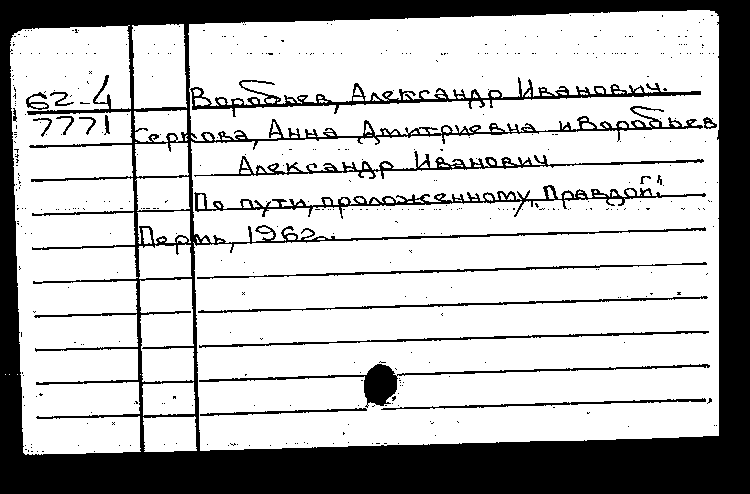 62-4
7771
Воробьев, Александр Иванович.
Серкова, Анна Дмитриевна и Воробьев,
Александр Иванович.
По пути, проложенному „Правдой".
Пермь, 1962.